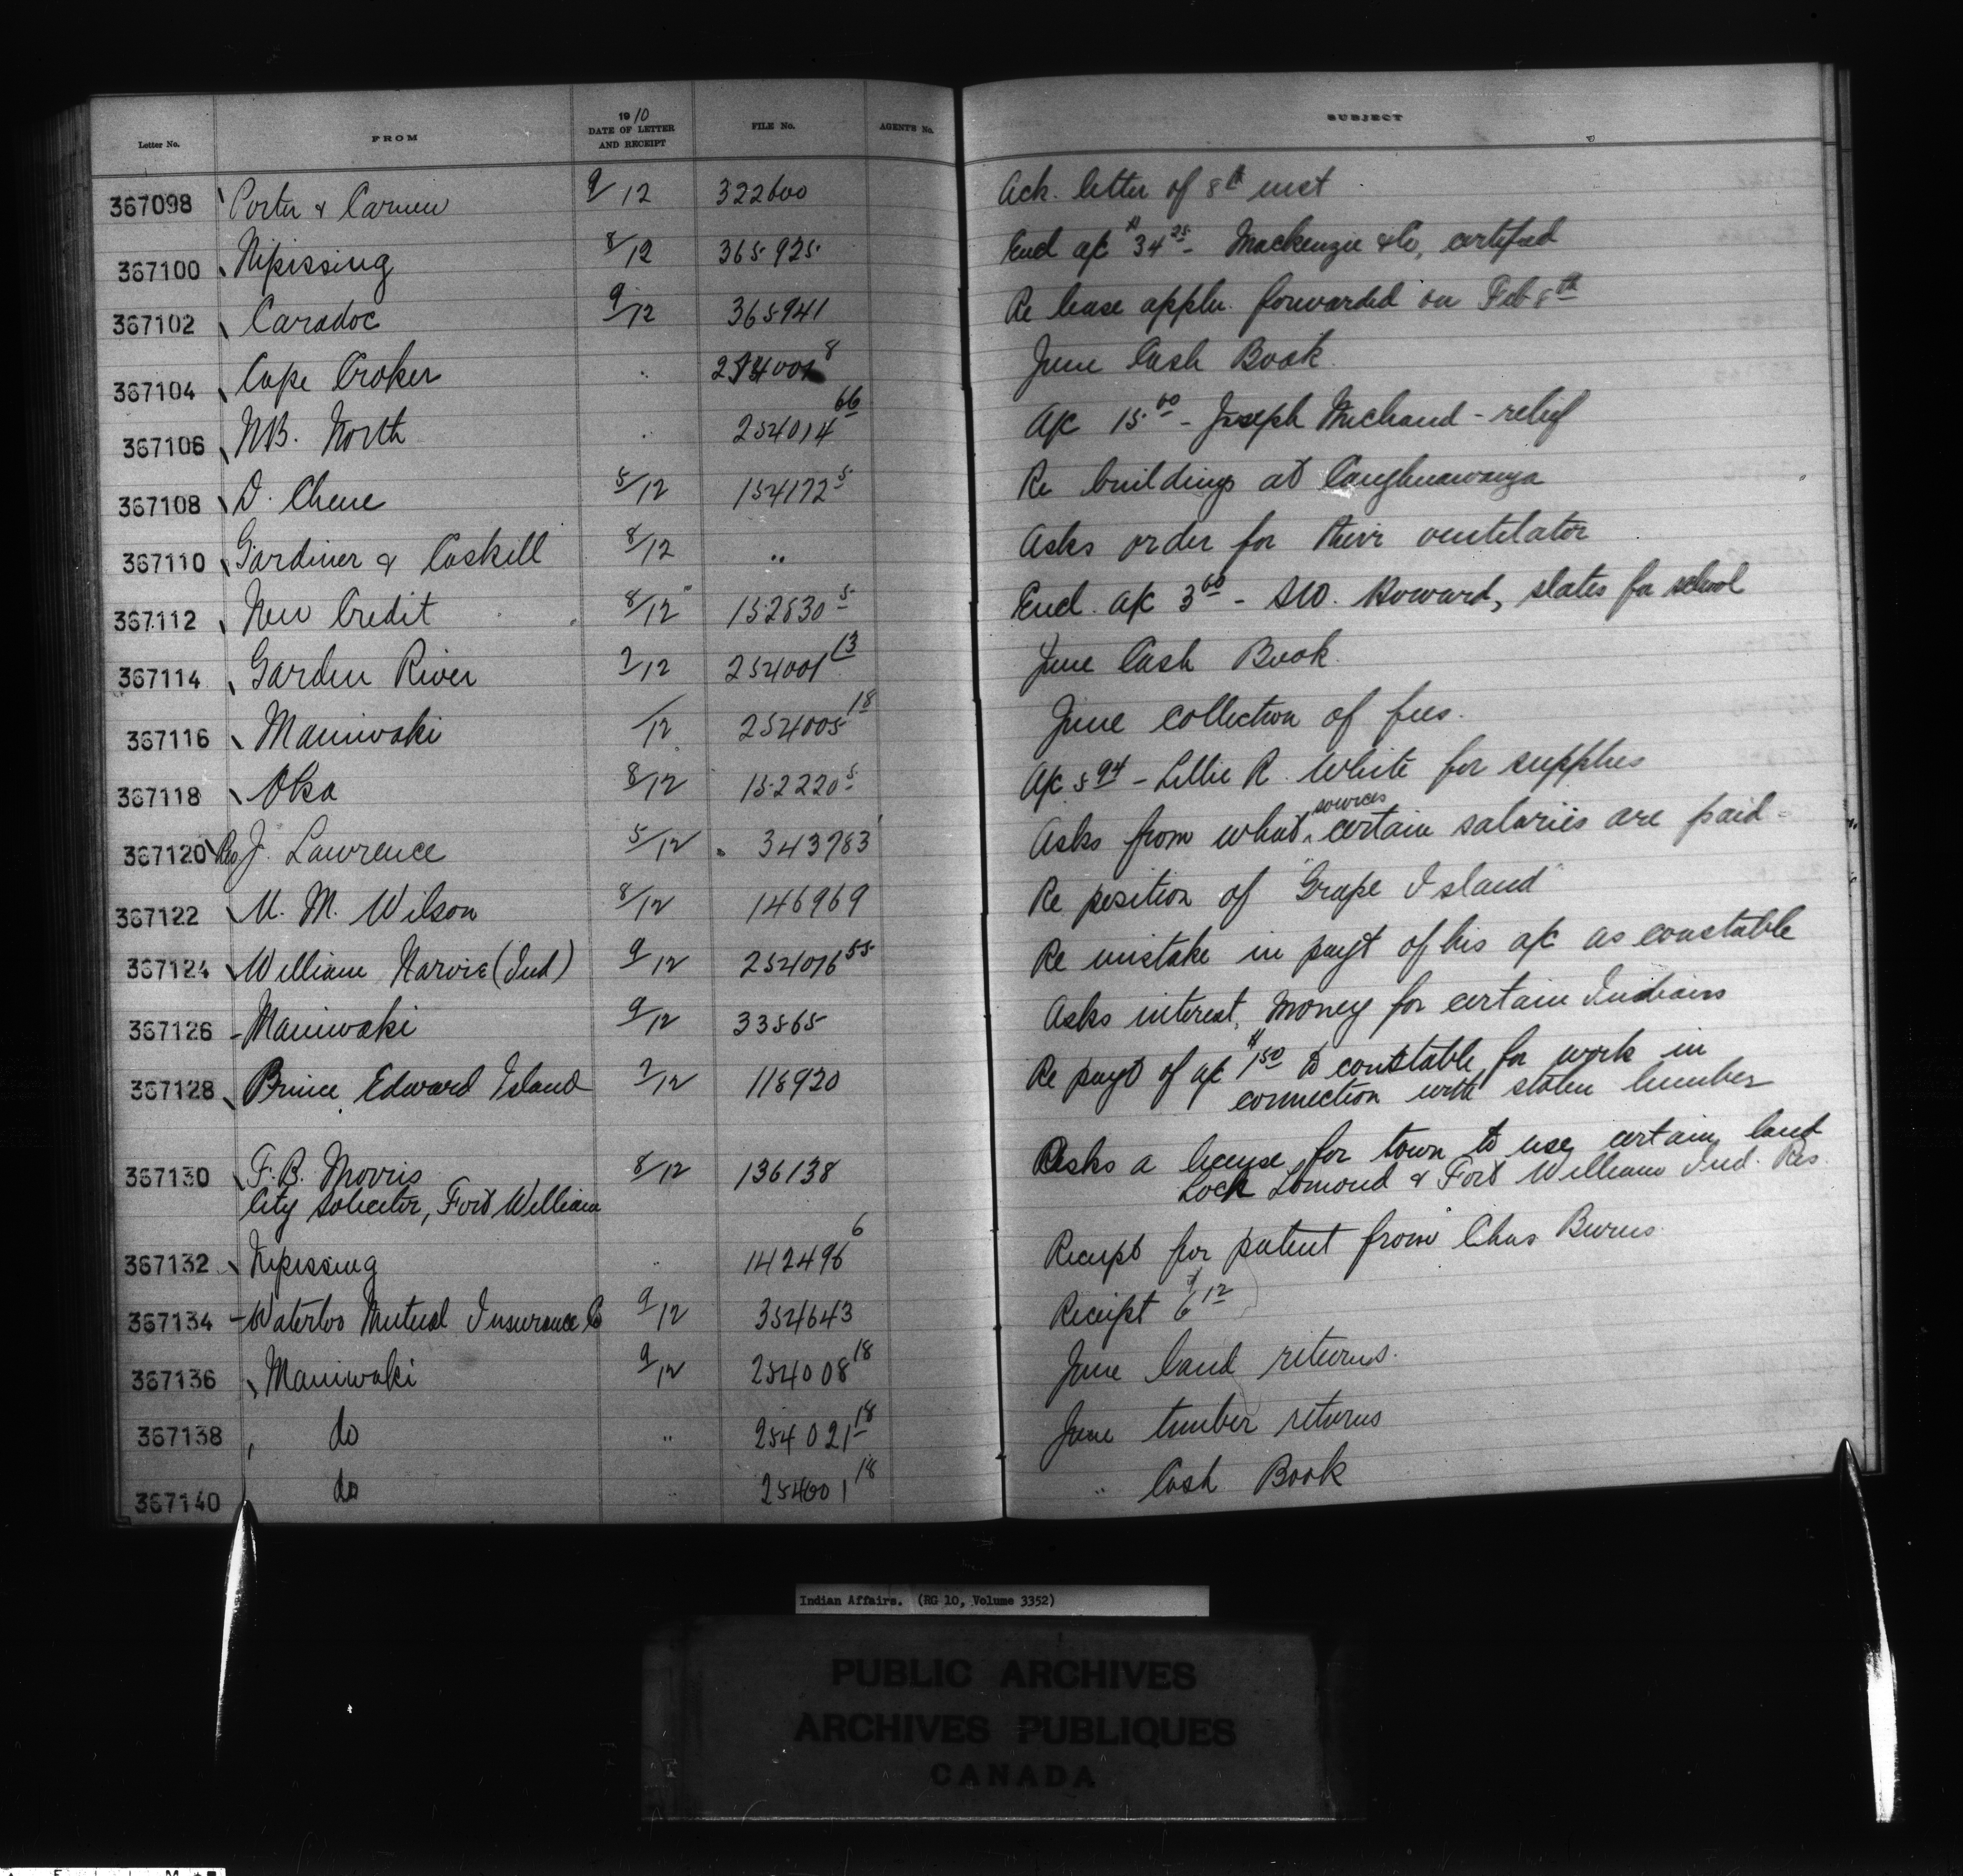 Letter No. FROM 1910 DATE OF LETTER AND RECEIPT FILE No. AGENT'S No. SUBJECT
367098 Porter & Carmen 9/12 322600 Ack. letter of 8th inst
367100 Nipissing 8/12 365925 Encl a/c $34 25 - Mackenzie & Co, certified
367102 Caradoc 9/12 365941 Re lease appln. forwarded on Feb 8th
367104 Cape Croker " 8 June Cash Book
367106 N.B. North " 254014 66 A/c 15.00 - Joseph Michaud - relief
367108 D. Chene 5/12 154172 5 Re buildings at Caughnawaga
367110 Gardiner & Caskill 8/12 " Asks order for their ventilator
367112 New Credit 8/12 152830 5 Encl. a/c 3 60 - Howard, slates for school
367114 Garden River 7/12 254001 13 June Cash Book
367116 Maniwaki /12 254005 18 June collection of fees.
367118 Oka 8/12 152220 5 A/c 5 94 - Lillie R. White for supplies
367120 Rev J. Lawrence 5/12 343783 Asks from what sources certain salaries are paid -
367122 M. M. Wilson 8/12 146969 Re position of "Grape Island"
367124 William Narvie (Ind) 9/12 254016 55 Re mistake in payt of his a/c as constable
367126 Maniwaki 9/12 33565 Asks interest money for certain Indians
367128 Prince Edward Island 7/12 118920 Re payt of a/c $1 50 to constable for work in
connection with stolen lumber
367130 F. B. Morris 8/12 136138 Asks a license for town to use certain land
City Solicitor, Fort William Lock Lomond & Fort William Ind. Res.
367132 Nipissing " 142496 6 Receipt for patent from Chas Burns
367134 Waterloo Mutual Insurance Co 9/12 354643 Receipt $6 12
367136 Maniwaki 9/12 254008 18 June land returns.
367138 do " 254021 18 June timber returns
367140 do " 254001 18 " Cash Book
Indian Affairs. (RG 10, Volume 3352)
PUBLIC ARCHIVES
ARCHIVES PUBLIQUES
CANADA